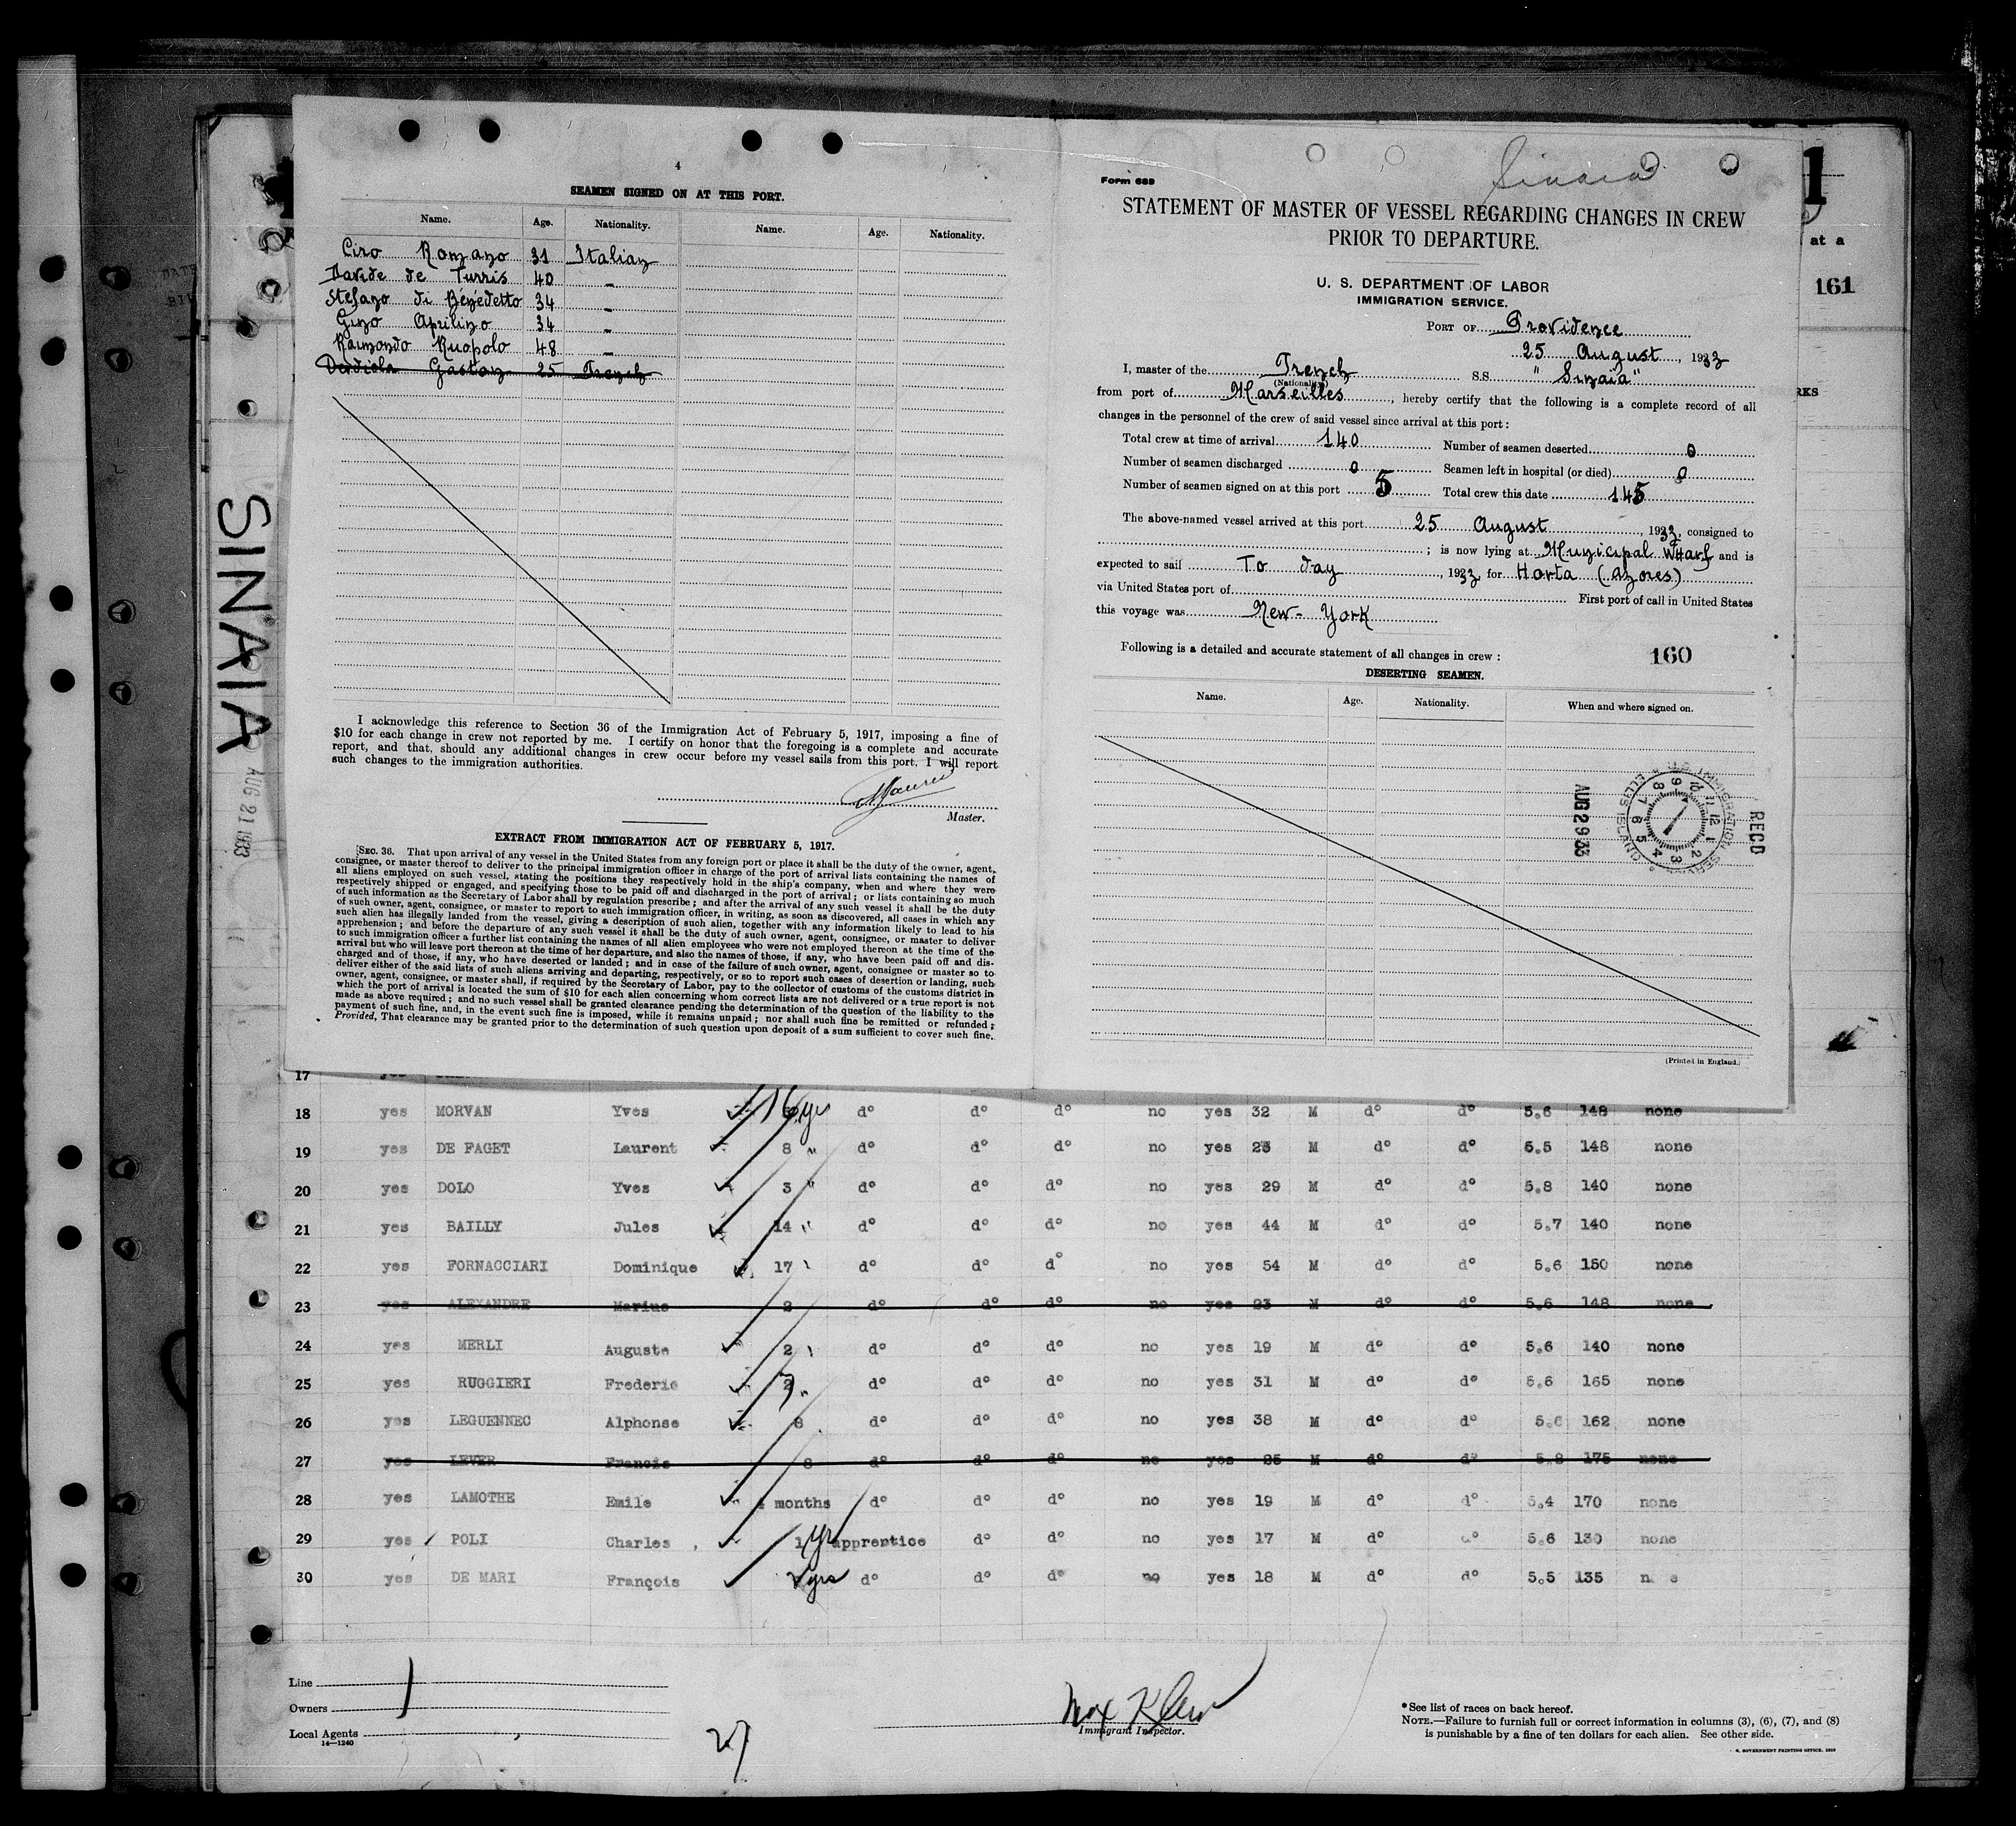 4
SEAMEN SIGNED ON AT THIS PORT.
Name. Age. Nationality. Name. Age. Nationality.
Ciro Romano 31 Italian
Davide de Turris 40 -
Stefano di Bénédetto 34 -
Gino Aprilino 34 -
Raimondo Ruopolo 48 -
Gaston 25 French
I acknowledge this reference to Section 36 of the Immigration Act of February 5, 1917, imposing a fine of
$10 for each change in crew not reported by me. I certify on honor that the foregoing is a complete and accurate
report, and that, should any additional changes in crew occur before my vessel sails from this port, I will report
such changes to the immigration authorities.
Master.
EXTRACT FROM IMMIGRATION ACT OF FEBRUARY 5, 1917.
SEC. 36. That upon arrival of any vessel in the United States from any foreign port or place it shall be the duty of the owner, agent,
consignee, or master thereof to deliver to the principal immigration officer in charge of the port of arrival lists containing the names of
all aliens employed on such vessel, stating the positions they respectively hold in the ship's company, when and where they were
respectively shipped or engaged, and specifying those to be paid off and discharged in the port of arrival; or lists containing so much
of such information as the Secretary of Labor shall by regulation prescribe; and after the arrival of any such vessel it shall be the duty
of such owner, agent, consignee, or master to report to such immigration officer, in writing, as soon as discovered, all cases in which any
such alien has illegally landed from the vessel, giving a description of such alien, together with any information likely to lead to his
apprehension; and before the departure of any such vessel it shall be the duty of such owner, agent, consignee, or master to deliver
to such immigration officer a further list containing the names of all alien employees who were not employed thereon at the time of the
arrival but who will leave port thereon at the time of her departure, and also the names of those, if any, who have been paid off and dis-
charged and of those, if any, who have deserted or landed; and in case of the failure of such owner, agent, consignee or master so to
deliver either of the said lists of such aliens arriving and departing, respectively, or so to report such cases of desertion or landing, such
owner, agent, consignee, or master shall, if required by the Secretary of Labor, pay to the collector of customs of the customs district in
which the port of arrival is located the sum of $10 for each alien concerning whom correct lists are not delivered or a true report is not
made as above required; and no such vessel shall be granted clearance pending the determination of the question of the liability to the
payment of such fine, and, in the event such fine is imposed, while it remains unpaid; nor shall such fine be remitted or refunded;
Provided, That clearance may be granted prior to the determination of such question upon deposit of a sum sufficient to cover such fine.
Form 689
Sinaia
STATEMENT OF MASTER OF VESSEL REGARDING CHANGES IN CREW
PRIOR TO DEPARTURE.
U. S. DEPARTMENT OF LABOR
IMMIGRATION SERVICE.
PORT OF Providence
25 August, 1933
I, master of the French S.S. "Sinaïa"
(Nationality)
from port of Marseilles, hereby certify that the following is a complete record of all
changes in the personnel of the crew of said vessel since arrival at this port:
Total crew at time of arrival 140 Number of seamen deserted 0
Number of seamen discharged 0 Seamen left in hospital (or died) 0
Number of seamen signed on at this port 5 Total crew this date 145
The above-named vessel arrived at this port 25 August, 1933, consigned to
; is now lying at Municipal Wharf and is
expected to sail To day, 1933, for Horta (Azores)
via United States port of First port of call in United States
this voyage was New-York
Following is a detailed and accurate statement of all changes in crew: 160
DESERTING SEAMEN.
Name. Age. Nationality. When and where signed on.
RECD
U.S. IMMIGRATION SERVICE ELLIS ISLAND
AUG 29 33
(Printed in England.)
1
at a
161
RKS
SINAIA
AUG 21 1933
17 yes
18 yes MORVAN Yves 16 yrs d° d° d° no yes 32 M d° d° 5.6 148 none
19 yes DE FAGET Laurent 8 " d° d° d° no yes 23 M d° d° 5.5 148 none
20 yes DOLO Yves 3 " d° d° d° no yes 29 M d° d° 5.8 140 none
21 yes BAILLY Jules 14 " d° d° d° no yes 44 M d° d° 5.7 140 none
22 yes FORNACCIARI Dominique 17 d° d° d° no yes 54 M d° d° 5.6 150 none
23 yes ALEXANDRE Marius 2 d° d° d° no yes 23 M d° d° 5.6 148 none
24 yes MERLI Auguste 2 d° d° d° no yes 19 M d° d° 5.6 140 none
25 yes RUGGIERI Frederic 3 " d° d° d° no yes 31 M d° d° 5.6 165 none
26 yes LEGUENNEC Alphonse 8 d° d° d° no yes 38 M d° d° 5.6 162 none
27 yes LEVER Francis 8 d° d° d° no yes 25 M d° d° 5.8 175 none
28 yes LAMOTHE Emile months d° d° d° no yes 19 M d° d° 5.4 170 none
29 yes POLI Charles 1 yr apprentice d° d° no yes 17 M d° d° 5.6 130 none
30 yes DE MARI François 2 yrs d° d° d° no yes 18 M d° d° 5.5 135 n e
Line
Owners
Local Agents
14—1240
27
Max Klein
Immigrant Inspector.
*See list of races on back hereof.
NOTE.—Failure to furnish full or correct information in columns (3), (6), (7), and (8)
is punishable by a fine of ten dollars for each alien. See other side.
GOVERNMENT PRINTING OFFICE